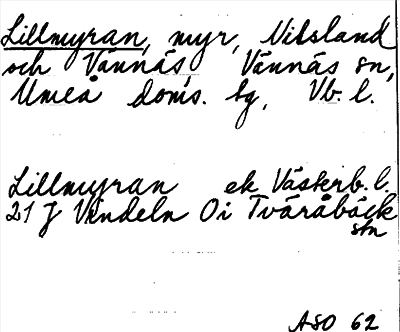 Lillmyran, myr, Nilsland
och Vännäs, Vännäs sn,
Umeå doms. tg, Vb. l.
Lillmyran ek Västerb. l.
21 J Vindeln Oi Tväråbäck
stn
ASO 62